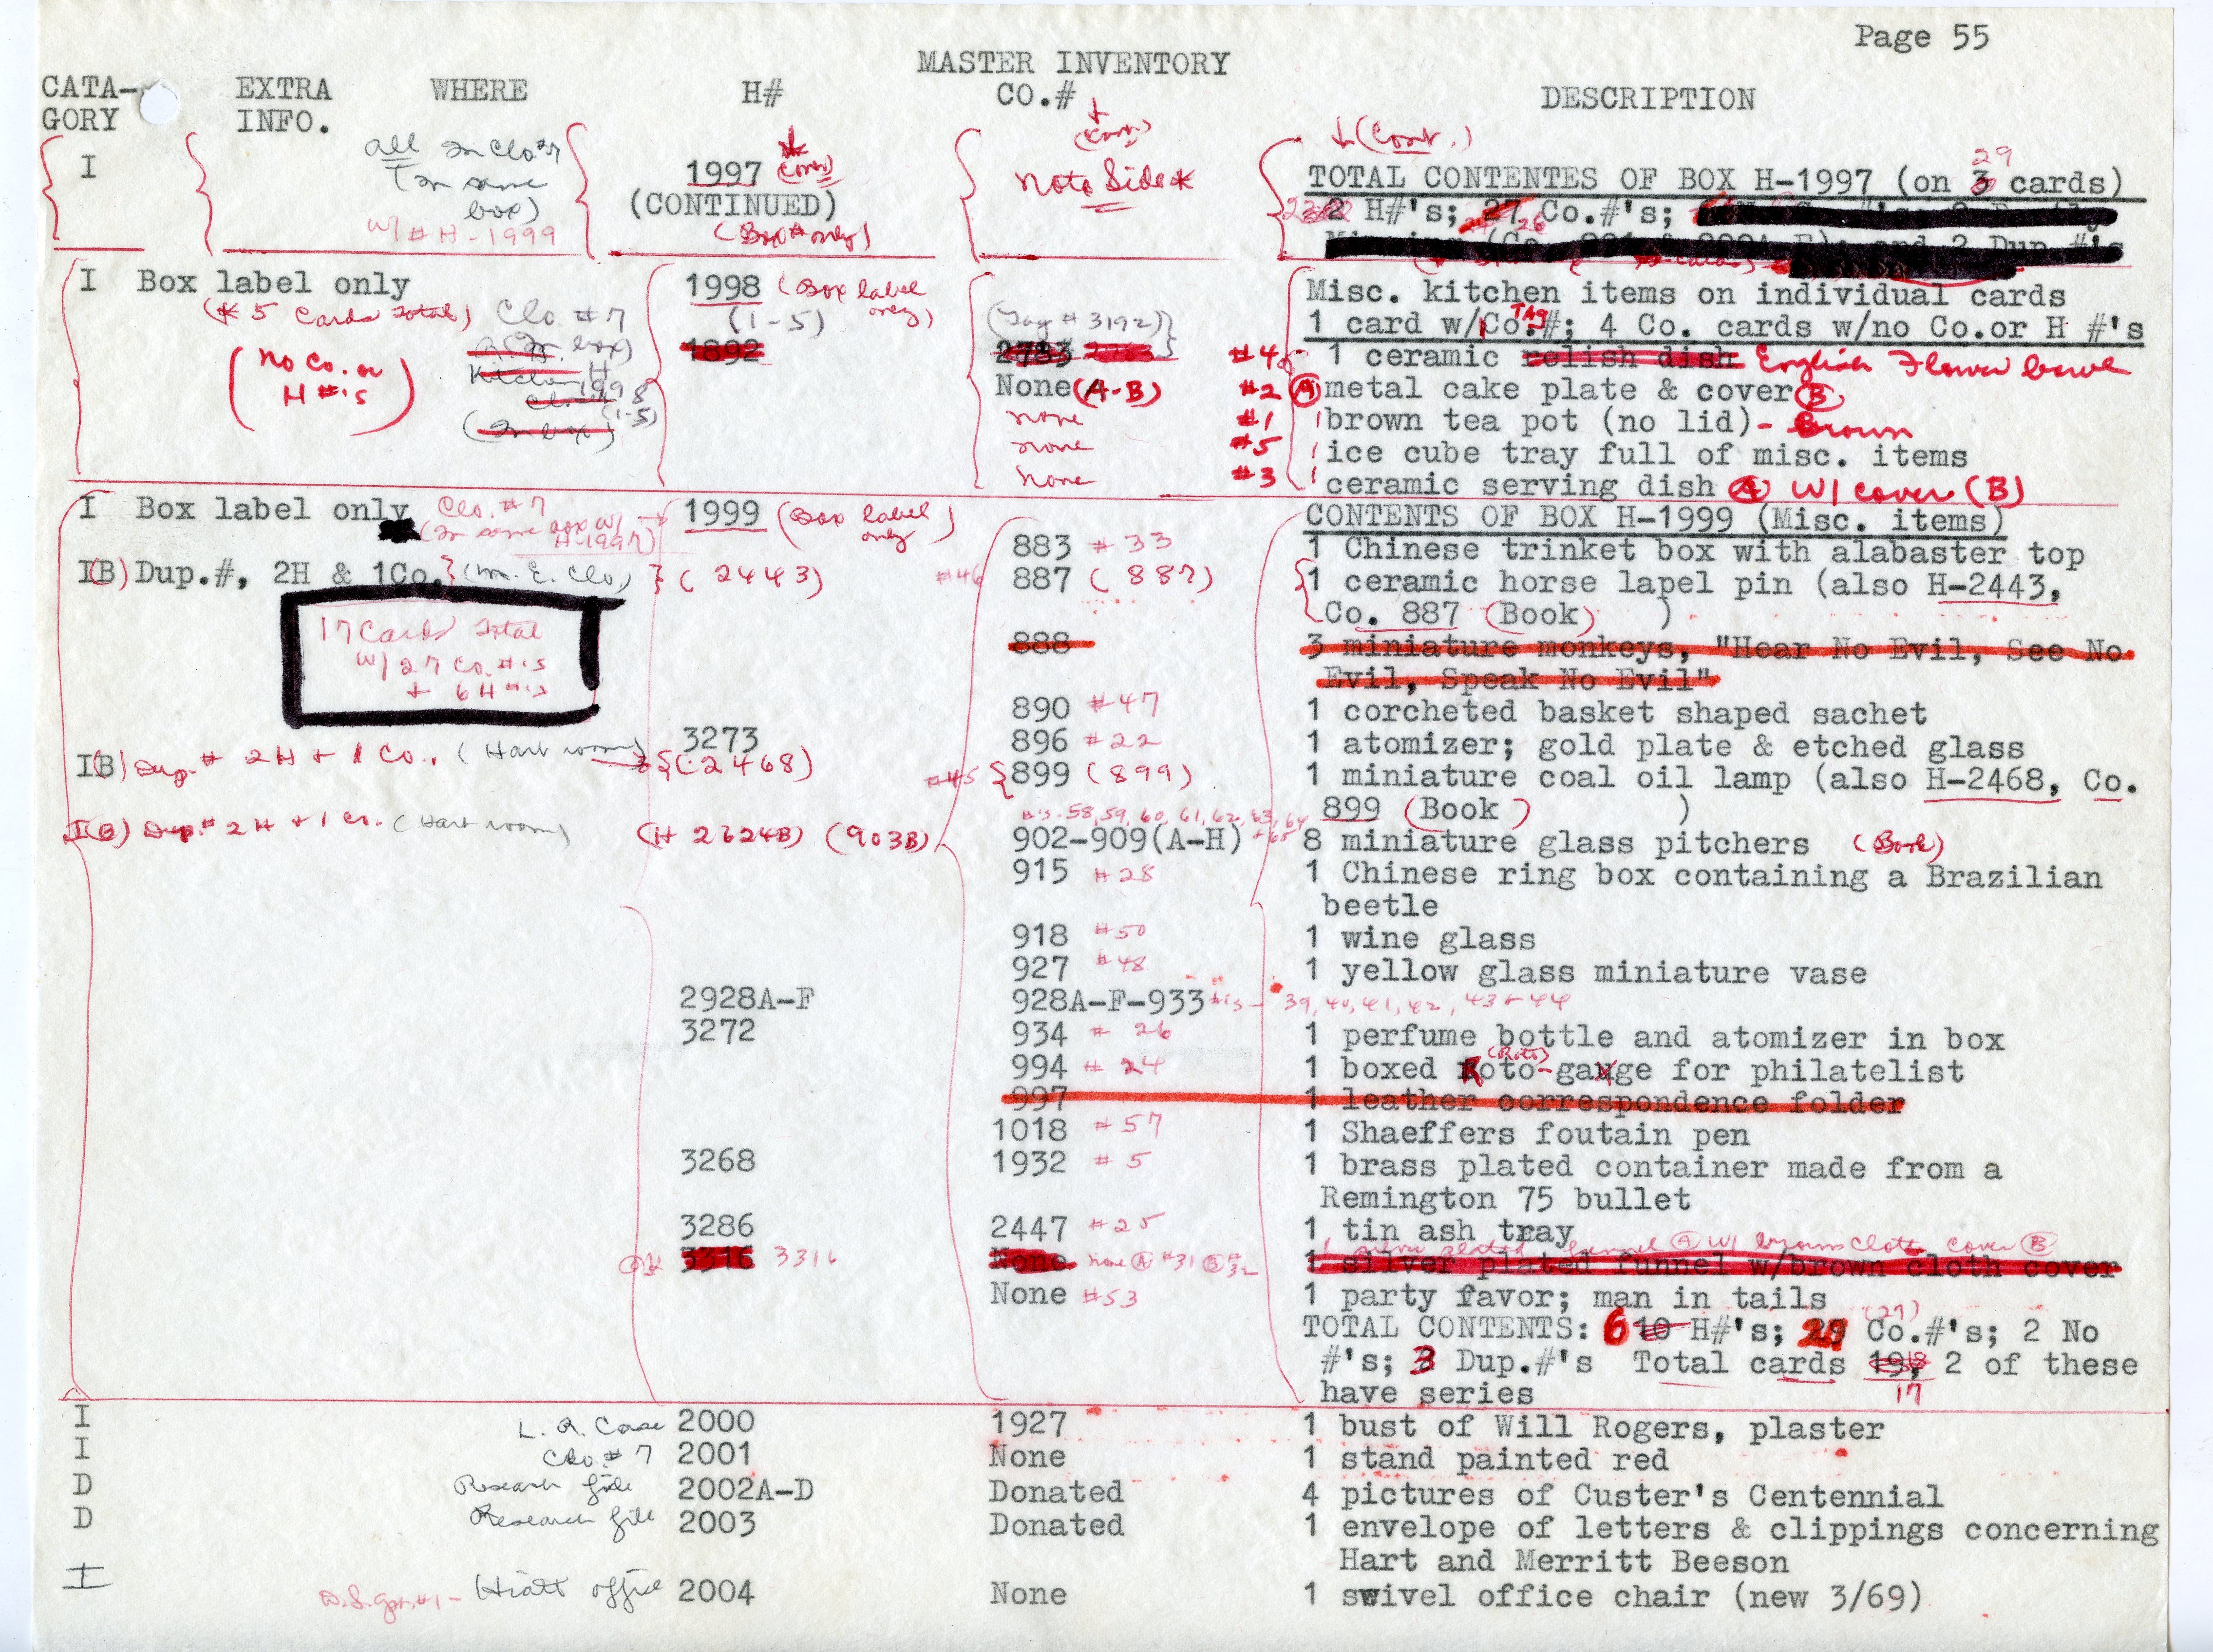 Page 55
MASTER INVENTORY
CATA-GORY EXTRA INFO. WHERE H# CO.# DESCRIPTION
↓ (Cont.) ↓ (Cont.)
I all In Clo #7 (In same box) W/ # H-1999 1997 (Cont) (CONTINUED) (Box # only) Note Side * TOTAL CONTENTES OF BOX H-1997 (on 3 29 cards)
2 H#'s; 27 26 Co.#'s;
and 2 Dup.#'s
I Box label only 1998 (Box label only) Misc. kitchen items on individual cards
(* 5 Cards total) Clo #7 (1-5) (Tag # 3192) 1 card w/Co. TAG #; 4 Co. cards w/no Co.or H #'s
(No Co. or H #'s) (In box) 1892 2783 #4 1 ceramic relish dish English Flower bowl
Kitchen H 1998 (1-5) None (A-B) #2 (A) metal cake plate & cover (B)
none #1 1 brown tea pot (no lid) - Brown
(In box) none #5 1 ice cube tray full of misc. items
none #3 1 ceramic serving dish (A) W/ cover (B)
I Box label only Clo. #7 (In same box w/ H-1997) 1999 (Box label only) CONTENTS OF BOX H-1999 (Misc. items)
883 #33 1 Chinese trinket box with alabaster top
I(B) Dup.#, 2H & 1Co. (M. E. Clo.) (2443) #46 887 (887) 1 ceramic horse lapel pin (also H-2443,
Co. 887 (Book) )
17 Cards Total
W/ 27 Co. #'s
+ 6 H #'s
888 3 miniature monkeys, "Hear No Evil, See No
Evil, Speak No Evil"
890 #47 1 corcheted basket shaped sachet
3273 896 #22 1 atomizer; gold plate & etched glass
I(B) Dup. # 2H + 1 Co., (Hart room) (2468) #45 899 (899) 1 miniature coal oil lamp (also H-2468, Co.
899 (Book) )
#'s 58, 59, 60, 61, 62, 63, 64
I(B) Dup. # 2H + 1 Co. (Hart room) (H 2624B) (903B) 902-909(A-H) + 65 8 miniature glass pitchers (Book)
915 #28 1 Chinese ring box containing a Brazilian
beetle
918 #50 1 wine glass
927 #48 1 yellow glass miniature vase
2928A-F 928A-F-933 #'s - 39, 40, 41, 42, 43 + 44
3272 934 # 26 1 perfume bottle and atomizer in box
994 # 24 1 boxed Roto (Roto)-gauge for philatelist
997 1 leather correspondence folder
1018 #57 1 Shaeffers foutain pen
3268 1932 # 5 1 brass plated container made from a
Remington 75 bullet
3286 2447 #25 1 tin ash tray
1 silver plated funnel (A) W/ brown cloth cover (B)
OK 3316 3316 None none (A) #31 (B) #32 1 silver plated funnel w/brown cloth cover
None #53 1 party favor; man in tails
TOTAL CONTENTS: 6 10 H#'s; 29 (27) Co.#'s; 2 No
#'s; 3 Dup.#'s Total cards 19, 18 17 2 of these
have series
I L. R. Case 2000 1927 1 bust of Will Rogers, plaster
I Clo. #7 2001 None 1 stand painted red
D Research file 2002A-D Donated 4 pictures of Custer's Centennial
D Research file 2003 Donated 1 envelope of letters & clippings concerning
Hart and Merritt Beeson
I Hiatt office 2004 None 1 swivel office chair (new 3/69)